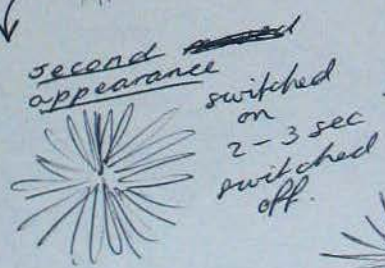 second
appearance
switched
on
2-3 sec
switched
off.